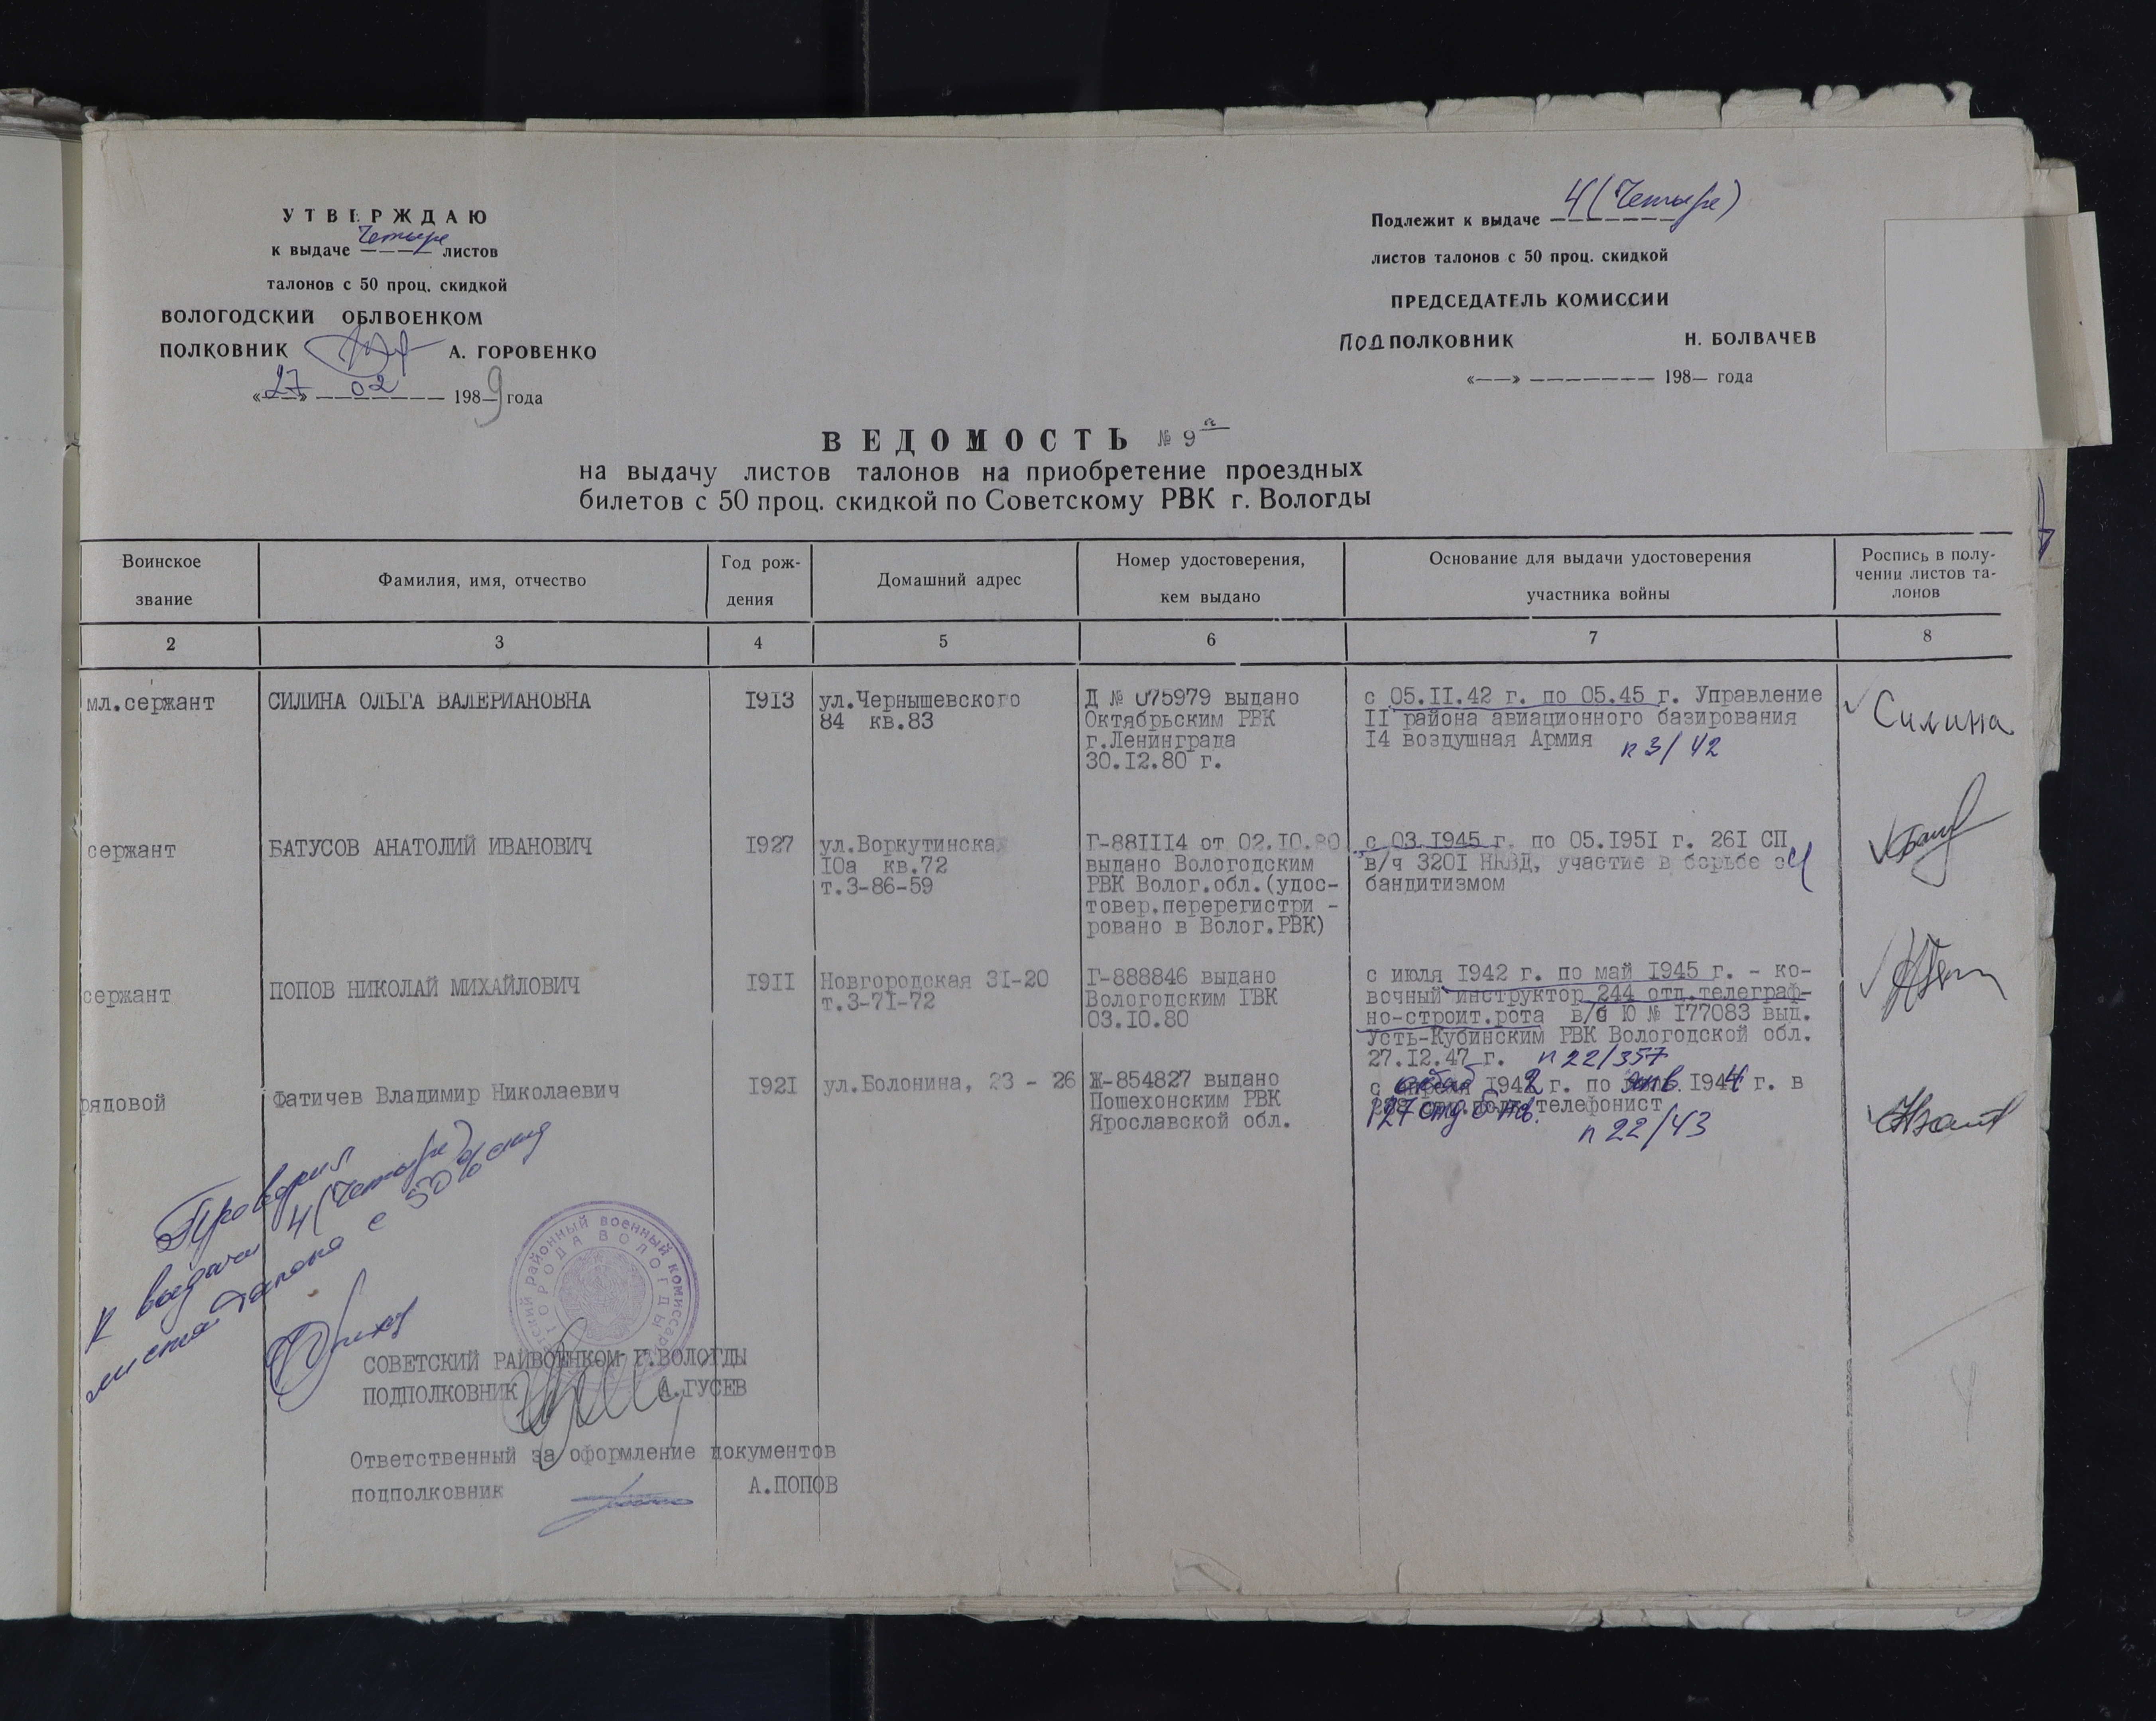 УТВЕРЖДАЮ
к выдаче четыре листов
талонов с 50 проц. скидкой
ВОЛОГОДСКИЙ ОБЛВОЕНКОМ
ПОЛКОВНИК А. ГОРОВЕНКО
«27» 02 1989 года
Подлежит к выдаче 4 (Четыре)
листов талонов с 50 проц. скидкой
ПРЕДСЕДАТЕЛЬ КОМИССИИ
ПОДПОЛКОВНИК Н. БОЛВАЧЕВ
«——» ———————— 198— года
ВЕДОМОСТЬ № 9
на выдачу листов талонов на приобретение проездных
билетов с 50 проц. скидкой по Советскому РВК г. Вологды
Воинское
звание
Фамилия, имя, отчество
Год рож-
дения
Домашний адрес
Номер удостоверения,
кем выдано
Основание для выдачи удостоверения
участника войны
Роспись в полу-
чении листов та-
лонов
2 3 4 5 6 7 8
мл.сержант
СИЛИНА ОЛЬГА ВАЛЕРИАНОВНА
I9I3
ул.Чернышевского
84 кв.83
Д № 075979 выдано
Октябрьским РВК
г.Ленинграда
30.I2.80 г.
с 05.II.42 г. по 05.45 г. Управление
II района авиационного базирования
I4 воздушная Армия п 3/42
Силина
сержант
БАТУСОВ АНАТОЛИЙ ИВАНОВИЧ
I927
ул.Воркутинская
I0а кв.72
т.3-86-59
Г-88III4 от 02.I0.80
выдано Вологодским
РВК Волог.обл.(удос-
товер.перерегистри -
ровано в Волог.РВК)
с 03.I945 г. по 05.I95I г. 26I СП
в/ч 320I НКВД, участие в борьбе с
бандитизмом
сержант
ПОПОВ НИКОЛАЙ МИХАЙЛОВИЧ
I9II
Новгородская 3I-20
т.3-7I-72
Г-888846 выдано
Вологодским ГВК
03.I0.80
с июля I942 г. по май I945 г. - ко-
вочный инструктор 244 отд.телеграф-
но-строит.рота в/б Ю № I77083 выд.
Усть-Кубинским РВК Вологодской обл.
27.I2.47 г. п 22/357
рядовой
Фатичев Владимир Николаевич
I92I
ул.Болонина, 23 - 26
Ж-854827 выдано
Пошехонским РВК
Ярославской обл.
с I942 г. по янв. I944 г. в
127 отд. телефонист
п 22/43
Проверил
к выдачи 4 (четыре)
листа талона с 50% скид
районный военный комиссариат
ГОРОДА ВОЛОГДЫ
СОВЕТСКИЙ РАЙВОЕНКОМ Г.ВОЛОГДЫ
ПОДПОЛКОВНИК А.ГУСЕВ
Ответственный за оформление документов
подполковник А.ПОПОВ